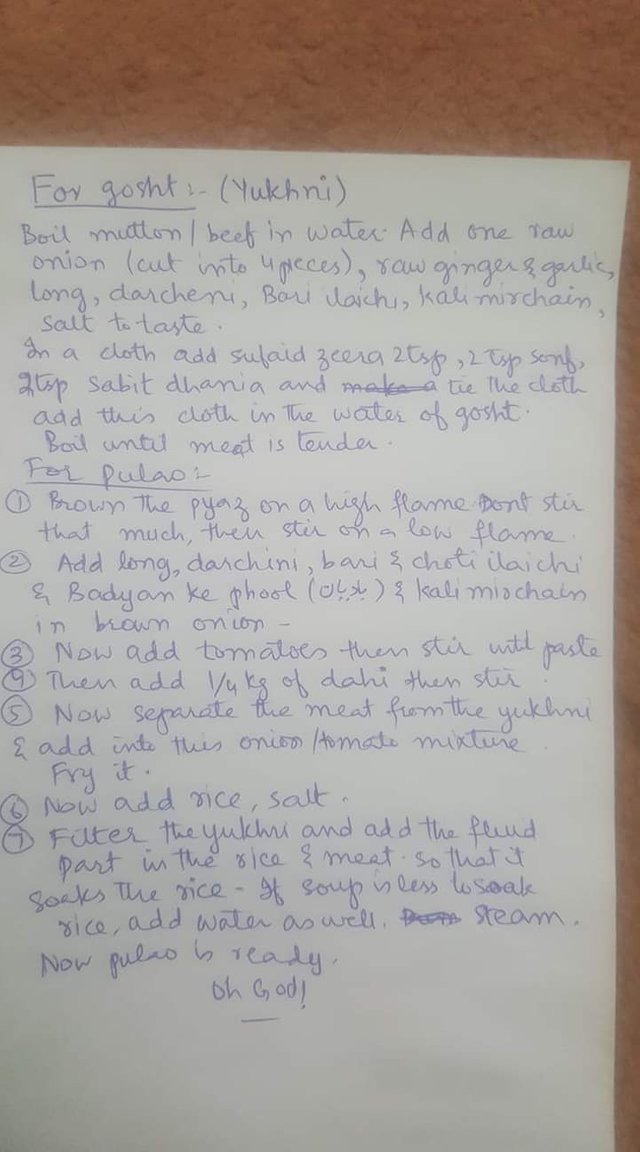 For gosht :- (Yukhni)
Boil mutton / beef in water. Add one raw
onion (cut into 4 pieces), raw ginger & garlic,
long, darcheni, Bari ilaichi, kali mirchain,
salt to taste.
In a cloth add sufaid zeera 2tsp, 2 tsp sonf,
2tsp sabit dhania and make a tie the cloth
add this cloth in the water of gosht.
Boil until meat is tender.
For pulao :-
① Brown the pyaz on a high flame Dont stir
that much, then stir on a low flame.
② Add long, darchini, bari & choti ilaichi
& Badyan ke phool (بادیان) & kali mirchain
in brown onion -
③ Now add tomatoes then stir until paste
④ Then add 1/4 kg of dahi then stir
⑤ Now separate the meat from the yukhni
& add into this onion/tomato mixture.
Fry it.
⑥ Now add rice, salt.
⑦ Filter the yukhni and add the fluid
part in the rice & meat. so that it
soaks the rice - If soup is less to soak
rice, add water as well. steam.
Now pulao is ready.
Oh God!